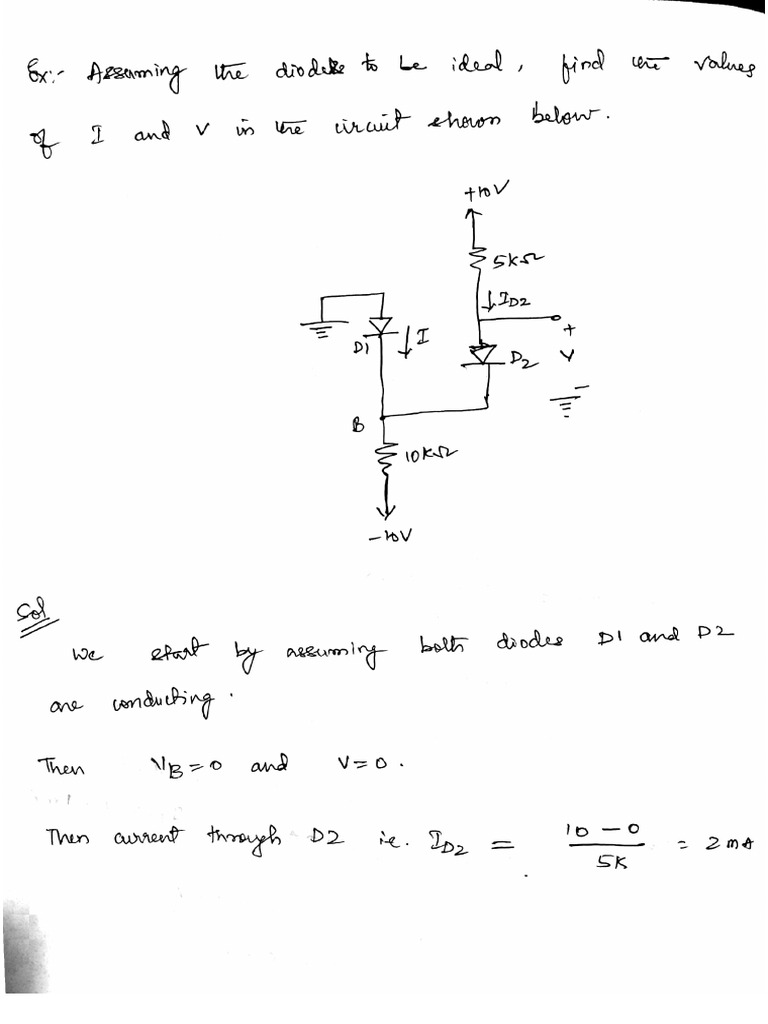 Ex:- Assuming the diodes to be ideal, find the values
of I and V in the circuit shown below.
+10V
5KΩ
I_D2
+
D1
I
D2
V
-
B
10KΩ
-10V
Sol
We start by assuming both diodes D1 and D2
are conducting.
Then V_B = 0 and V = 0.
Then current through D2 i.e. I_D2 = (10 - 0)/5K = 2 mA